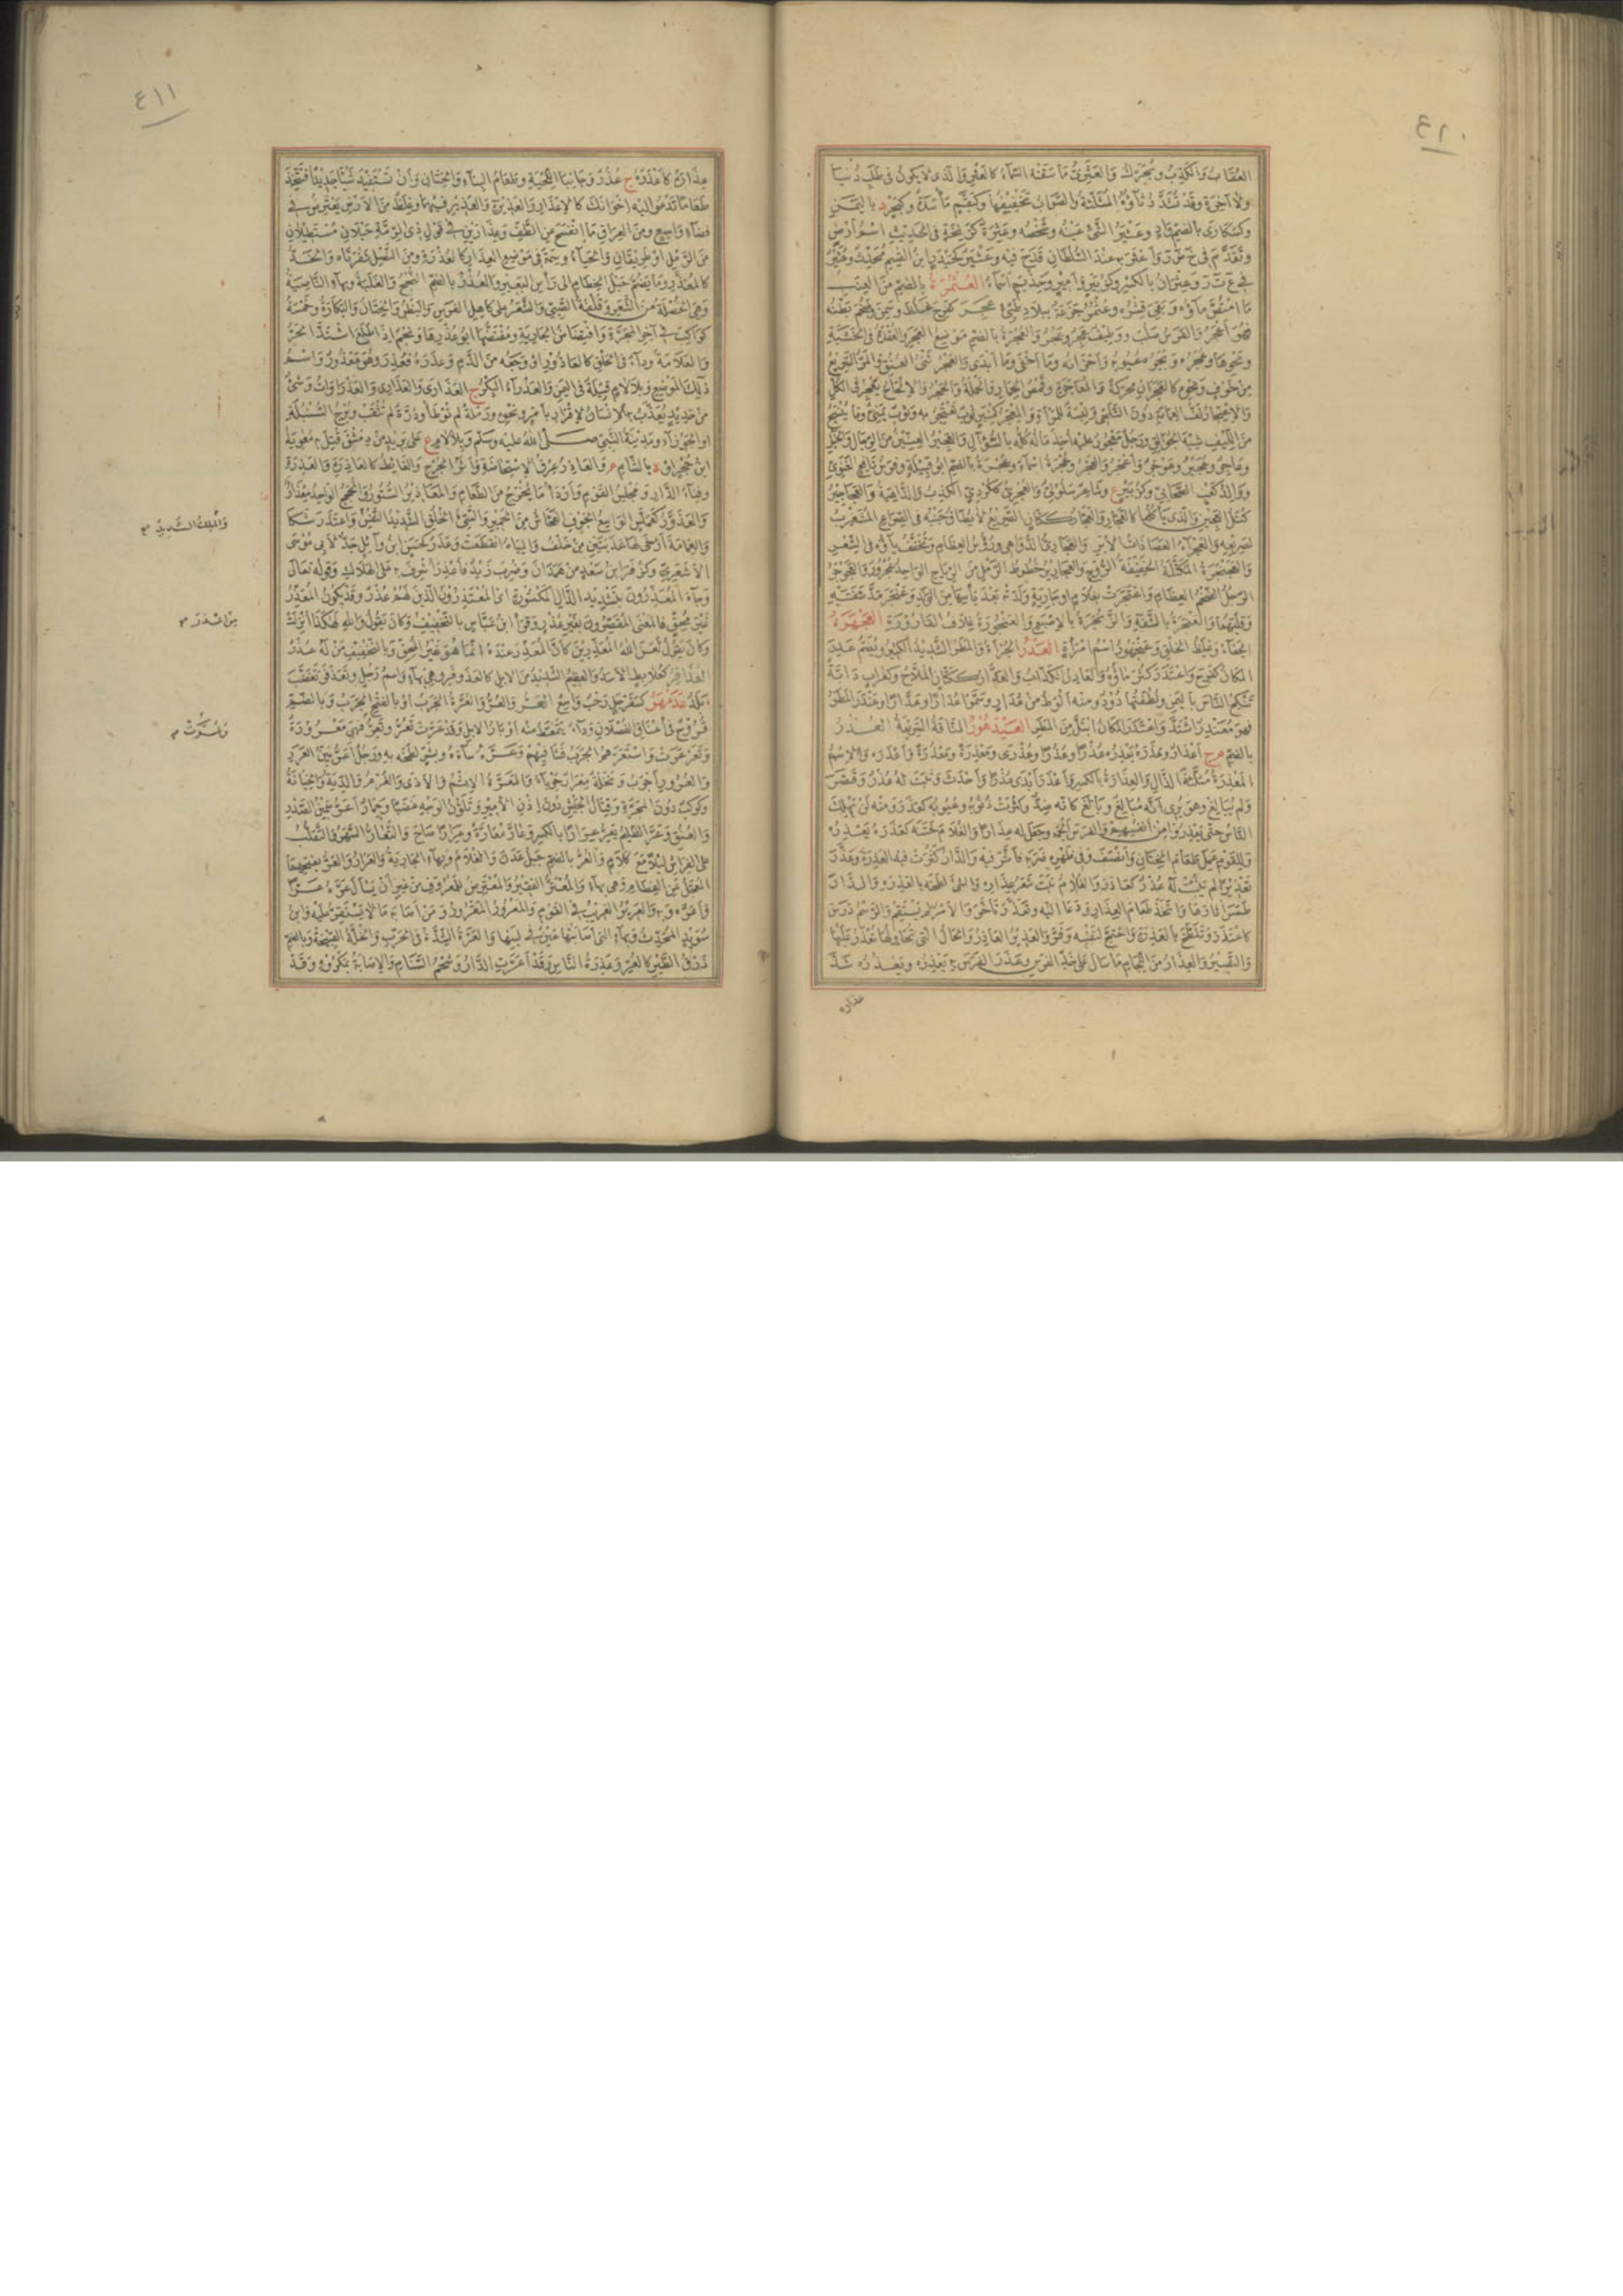 ٤١٠
العقاب والكذب ويحرك والعثري ما سقته السماء كالعثر والذي لا يكون في طلب دنيا
ولا آخرة وقد تشدد ثاؤه المثلثة والصواب تخفيفها وكبقم مأسدة وكبحر د باليمن
وكسكارى بالضم واد وعثير الشيء عينه وشخصه وعثرة كزنخة في الحديث اسم أرض
وتقدم في خ ض ر وأعثر به عند السلطان قدح فيه وعثير كحيدر ابن القسم محدث وعثير
في ع ت ر وعثران بالكسر وكزبير وأمير وحذيم أسماء العثمرة بالضم من العنب
ما امتص ماؤه وبقي قشره وعثمر جزعة ببلاد طيئ عجر كفرح غلظ وسمن وضخم بطنه
فهو أعجر والفرس صلب ووظيف عجر وعجر والعجرة بالضم موضع العجر والعقدة في الخشبة
ونحوها وعجره وبجره عيوبه وأحزانه وما أبدى وما أخفى والعجر ثني العنق والمر السريع
من خوف ونحوه كالعجران محركة والمعاجرة وقمص الحمار والحملة والحجر والإلحاح يعجر في الكل
والاعتجار لف العمامة دون التلحي ولبسة للمرأة والمعجر كمنبر ثوب تعتجر به وثوب يمني وما ينسج
من الليف شبه الجوالق ورجل معجور عليه أخذ ماله كله بالسؤال والعجير العنين من الرجال والخيل
وعاجر وعجير وعوجر وأعجر والعجر وعجرة أسماء وعجرة بالضم أبو قبيلة ومن بن نافع الغنوي
ووالد كعب الصحابي وكزبير ع وشاعر سلولي والعجري ككردي الكذب والداهية والعجاجير
كتل العجين والذي يأكلها كالعجار والعجار ككتان الصريع لا يطاق جنبه في الصراع المشغزب
لصريعه والعجراء العصا ذات الأبن والعجاري الدواهي ورؤس العظام وتخفف ياؤه في الشعر
الجفاء وغلظ الخلق وعجهور اسم امرأة العدر الجرأة والمطر الشديد الكثير ويضم عدر
المكان كفرح واعتدر كثر ماؤه والعادر الكذاب والعدار ككتان الملاح وكغراب دابة
تنكح الناس باليمن ونطفتها دود ومنه ألوط من عدار وسموا عدارا وعدارا وعندر المطر
فهو معندر اشتد واعتدر المكان ابتل من المطر العيدهور الناقة السريعة العذر
بالضم م ج أعذار وعذره يعذره عذرا وعذرا وعذرى ومعذرة ومعذرة وأعذره والاسم
المعذرة مثلثة الذال والعذرة بالكسر وأعذر أبدى عذرا وأحدث وثبت له عذر وقصر
ولم يبالغ وهو يرى أنه مبالغ وبالغ كأنه ضد وكثرت ذنوبه وعيوبه كعذر ومنه لن يهلك
الناس حتى يعذروا من أنفسهم والفرس ألجمه وجعل له عذارا والغلام ختنه كعذره يعذره
وللقوم عمل طعام الختان وأنصف وفي ظهره ضربه فأثر فيه والدار كثرت فيها العذرة وعذر
تعذيرا لم يثبت له عذر كعاذر والغلام نبت شعر عذاره والشيء لطخه بالعذرة والدار
طمس آثارها واتخذ طعام العذار ودعا إليه وتعذر تأخر والأمر لم يستقم والرسم درس
كاعتذر وتلطخ بالعذرة واحتج لنفسه وفر والعذير العاذر والحال التي تحاولها تعذر عليها
والنصير والعذار من اللجام ما سال على خد الفرس وعذر الفرس به يعذره ويعذره شد
عذاره
٤١١
عذاره كاعذره ج عذر وجانبا اللحية وطعام البناء والختان وأن تستفيد شيئا جديدا فتتخذ
طعاما تدعو إليه إخوانك كالإعذار والعذيرة والعذير فيهما وغلظ من الأرض يعترض في
فضاء واسع ومن العراق ما انفسح عن الطف وعذارين في قول ذي الرمة حبلان مستطيلان
من الرمل أو طريقان والحياء وسمة في موضع العذار كالعذرة ومن النصل شفرتاه والخد
كالمعذر وما يضم حبل الخطام إلى رأس البعير والعذر بالضم النجح والغلبة وبهاء الناصية
وهي الخصلة من الشعر وقلفة الصبي والشعر على كاهل الفرس والبظر والختان والبكارة وخمسة
كواكب في آخر المجرة وافتضاض الجارية ومفتضها أبو عذرها ونجم إذا طلع اشتد الحر
والعلامة وداء في الحلق كالعاذور أو وجعه من الدم وعذره فعذر وهو معذور واسم
ذلك الموضع وبلا لام قبيلة في اليمن والعذراء البكر ج العذارى والعذاري والعذراوات وشيء
من حديد يعذب به الإنسان لإقرار بأمر ونحوه ورملة لم توطأ ودرة لم تثقب وبرج السنبلة
أو الجوزاء ومدينة النبي صلى الله عليه وسلم وبلا لام ع على بريد من دمشق قتل به معوية
ابن حجر أو ة بالشام م والعاذر عرق الاستحاضة وأثر الجرح والغائط كالعاذرة والعذرة
وفناء الدار ومجلس القوم وأردأ ما يخرج من الطعام والمعاذير الستور والحجج الواحد معذار
والعذور كعملس الواسع الجوف الفحاش من الحمير والسيئ الخلق الشديد النفس واعتذر شكا
والعمامة أرخى لها عذبتين من خلف والمياه انقطعت وعذر كحسن ابن وائل جد لأبي موسى
الأشعري وكزفر ابن سعد من همدان وضرب زيد فأعذر أشرف به على الهلاك وقوله تعالى
وجاء المعذرون بتشديد الذال المكسورة أي المعتذرون الذين لهم عذر وقد يكون المعذر
غير محق فالمعنى المقصرون بغير عذر وقرأ ابن عباس بالتخفيف وكان يقول والله لهكذا أنزلت
وكان يقول لعن الله المعذرين كأن المعذر عنده إنما هو غير المحق وبالتخفيف من له عذر
العذافر كعلابط الأسد والعظيم الشديد من الإبل كالعذوفر وهي بهاء واسم رجل وتعذفر تغضب
بلد عذمهر كسفرجل رحب واسع العر والعر والعرة الجرب أو بالفتح الجرب وبالضم
قروح في أعناق الفصلان وداء يتمعط منه أوبار الإبل وقد عرت تعر وتعر فهي معرورة
وتعرعرت واستعرهم الجرب فشا فيهم وعره ساءه وبشر لطخه به ورجل أعر بين العرر
والعرور أجرب ونخلة معرار جرباء والمعرة الإثم والأذى والغرم والدية والخيانة
وكوكب دون المجرة وقتال الجيش دون إذن الأمير وتلون الوجه غضبا وحمار أعر سمين الصدر
والعنق وعر الظليم يعر عرارا بالكسر وعار معارة وعرارا صاح والتعار السهر والتقلب
على الفراش ليلا مع كلام والعر بالضم جبل عدن والغلام وبهاء الجارية والعرار والعر بفتحهما
المعجل عن الفطام وهي بهاء والمعتر الفقير والمعترض للمعروف من غير أن يسأل عره عرا
واعتره وبه والعرير الغريب في القوم والمعرور المقرور ومن أصابه ما لا يستقر عليه وابن
سويد المحدث وبهاء التي أصابتها عين في لبنها والعرة الشدة في الحرب والخلة القبيحة وبالضم
ذرق الطير كالعر وعذرة الناس وقد أعرت الدار وشحم السنام والإصابة بمكروه وقد
والملك الشديد
من اعتذر م
وعرت م